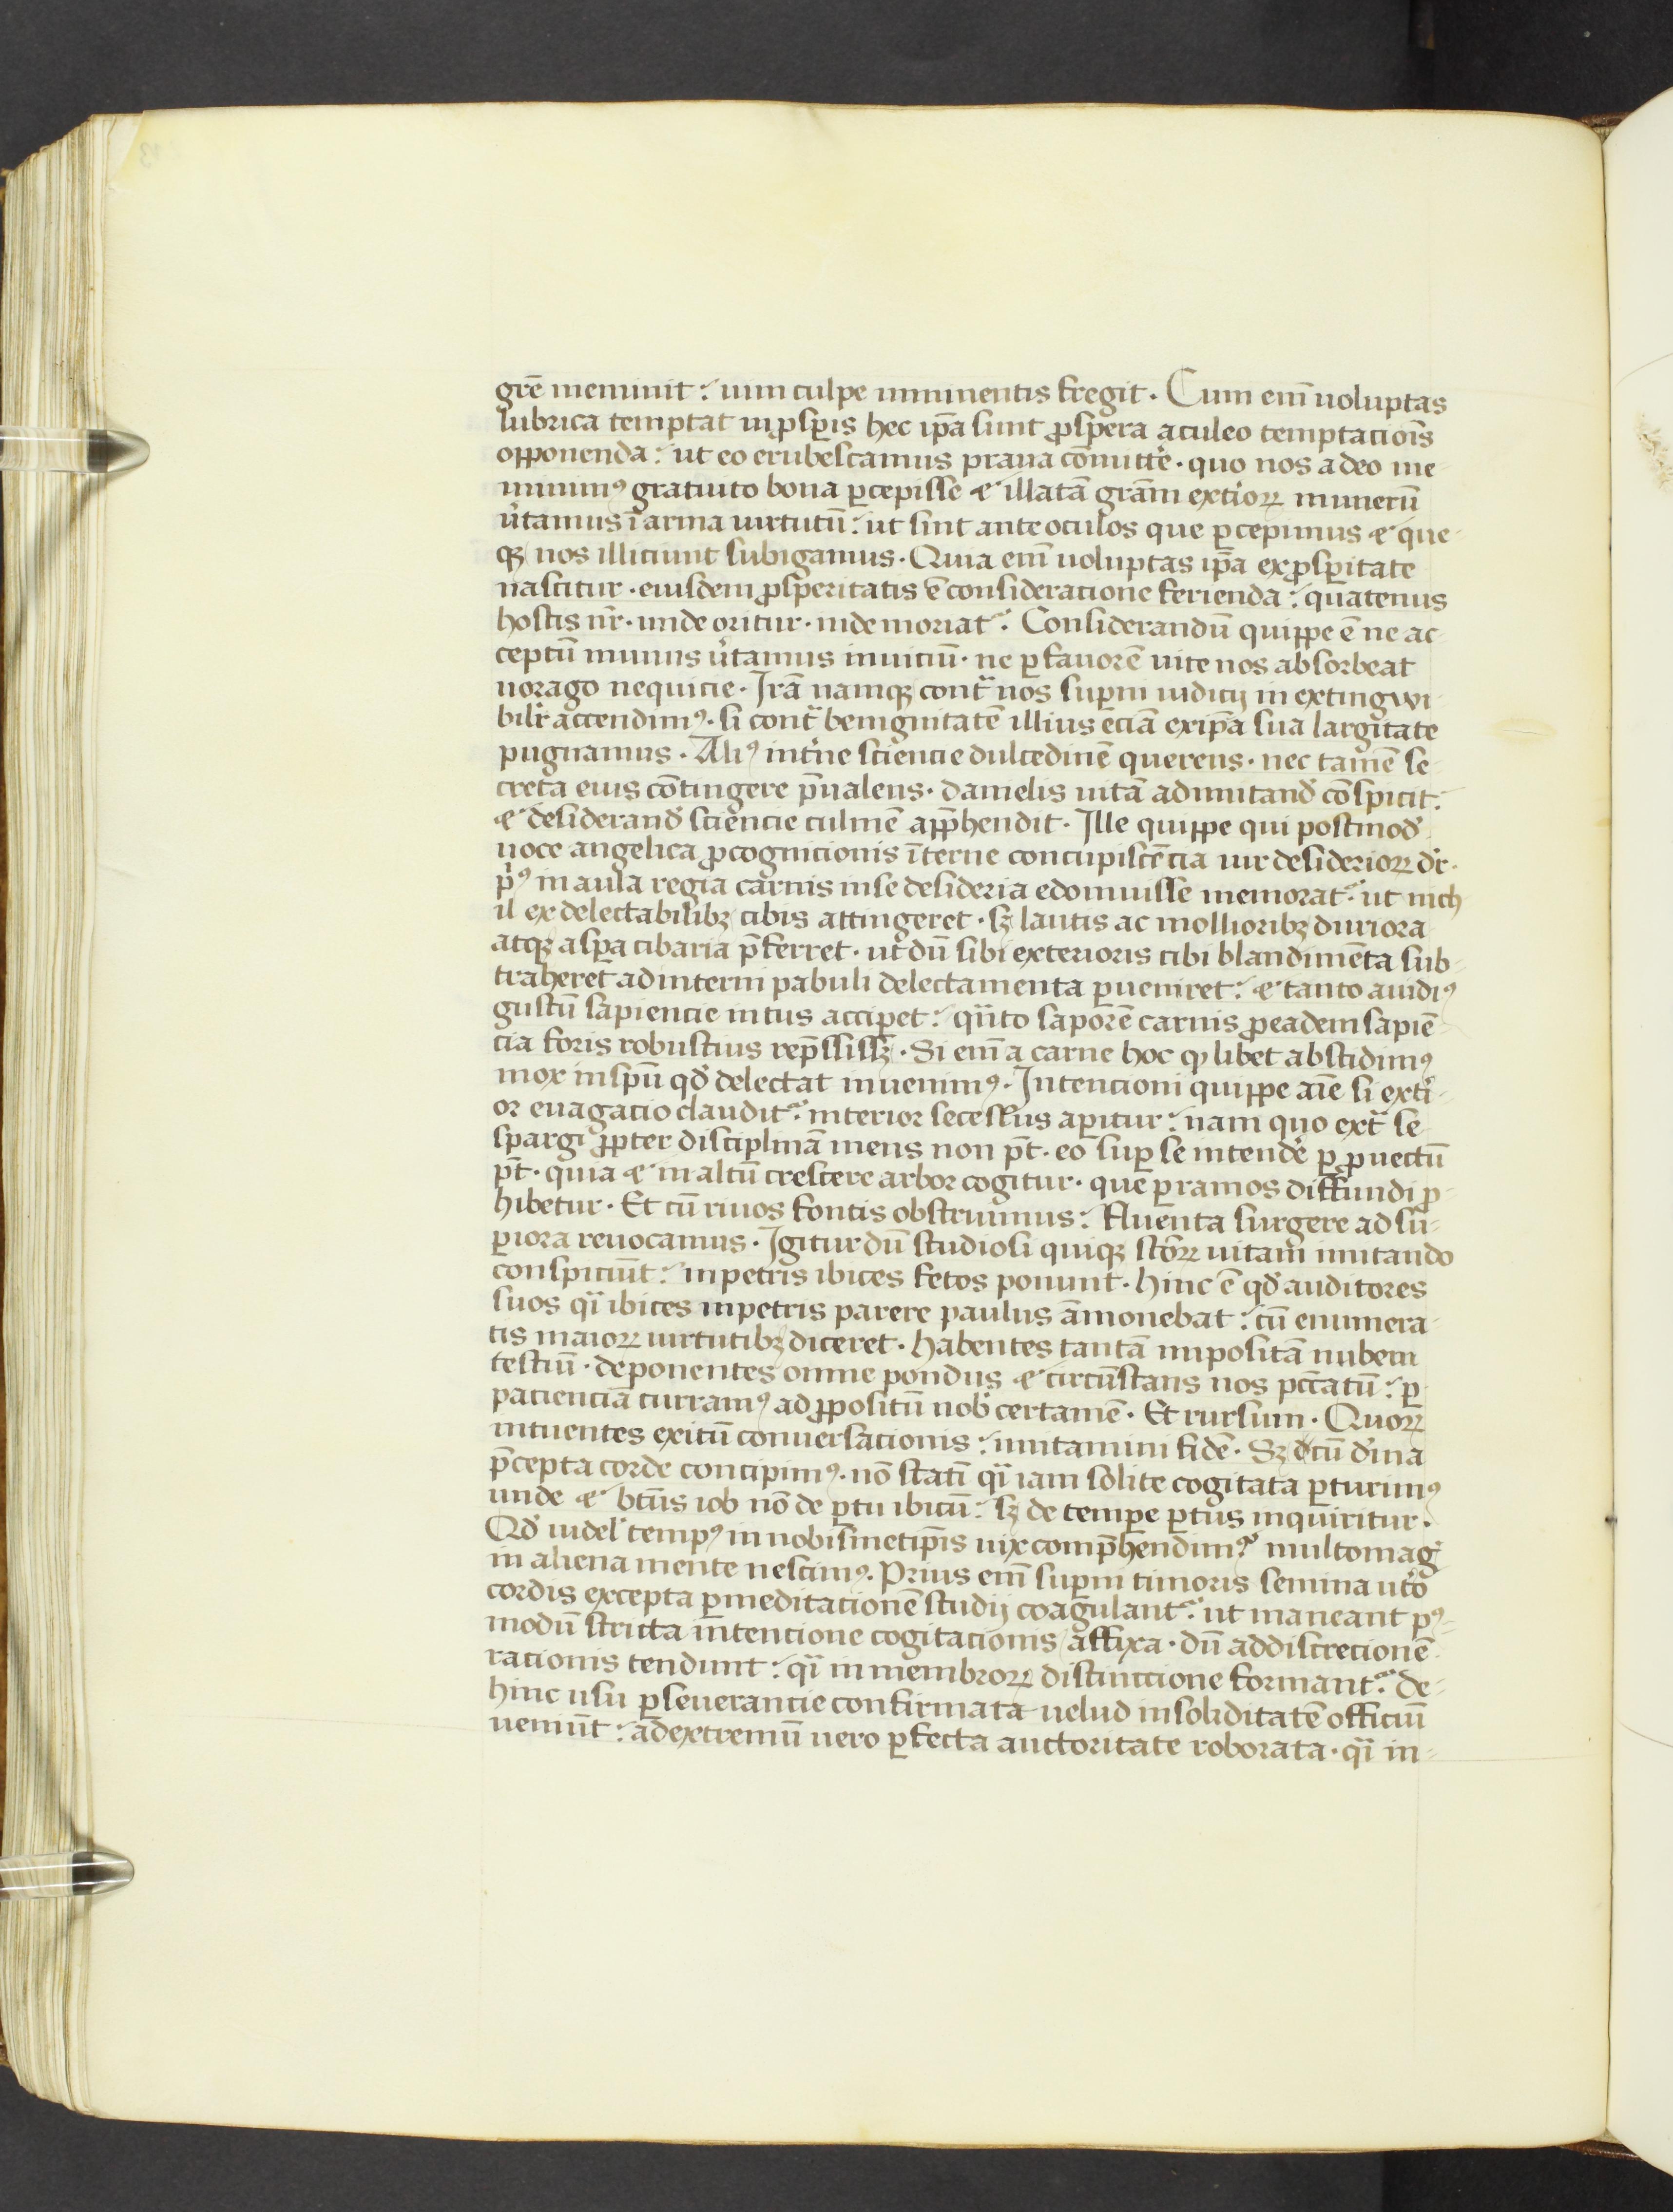 grē meminit : uim culpe imminentis fregit . Cum enī uoluptas
lubrica temptat in ꝓsꝑis hec ip̄a sunt ꝓspera aculeo temptacioīs
opponenda : ut eo erubescamus praua cōmitte͛ . quo nos adeo me-
minimꝰ gratuito bona ꝑcepisse ⁊ illatā grām ext͛ioꝝ munerū
u͛tamus ī arma uirtutū : ut sint ante oculos que ꝑcepimus ⁊ que-
qꝫ nos illiciunt subigamus . Quia enī uoluptas ip̄a ex ꝓsꝑitate
nascitur . eiusdem ꝓsperitatis ē consideracione ferienda : quatenus
hostis nr̄ . unde oritur . inde moriat᷑ . Considerandū quippe ē ne ac-
ceptū munus u͛tamus in uiciū . ne ꝑ fauorē uite nos absorbeat
uorago nequicie . Irā namqꝫ contͣ nos suꝑni iudicij inextingwi-
bilr͛ accendimꝰ . si contͣ benignitatē illius eciā ex ip̄a sua largitate
pugnamus . Aliꝰ int͛ne sciencie dulcedinē querens . nec tamē se-
creta eius cōtingere p̄ualens . danielis uitā ad imitand͛ cōspicit :
⁊ desiderand͛ sciencie culmē app̄hendit . Ille quippe qui postmod͛
uoce angelica ꝓ cognicionis īterne concupiscēcia uir desiderioꝝ dr͛ .
pͥꝰ in aula regia carnis in se desideria edomuisse memorat᷑ . ut nich
il ex delectabilibꝫ cibis attingeret . sꝫ lautis ac mollioribꝫ duriora
atqꝫ asꝑa cibaria p̄ferret . ut dū sibi exterioris cibi blandimēta sub-
traheret ad interni pabuli delectamenta ꝑueniret : ⁊ tanto auidiꝰ
gustū sapiencie intus acciꝑet : qͣnto saporē carnis ꝓ eadem sapiē-
cia foris robustius rep̄ssissꝫ . Si enī a carne hoc qͦ libet abscidimꝰ
mox in spū qd͛ delectat inuenimꝰ . Intencioni quippe aīe si ext͛i-
or euagacio claudit᷑ . interior secessus aꝑitur : nam quo extͣ se
spargi ꝓpter disciplinā mens non pt̄ . eo suꝑ se intende͛ ꝑ ꝓuectū
pt̄ . quia ⁊ in altū crescere arbor cogitur . que ꝑ ramos diffundi ꝓ-
hibetur . Et cū riuos fontis obstruimus : fluenta surgere ad su-
ꝑiora reuocamus . Igitur dū studiosi quiqꝫ sc̄oꝝ uitam imitando
conspiciūt : in petris ibices fetos ponunt . Hinc ē qd͛ auditores
suos qͣi ibices in petris parere paulus āmonebat : cū enumera-
tis maioꝝ uirtutibꝫ diceret . Habentes tantā impositā nubem
testiū . deponentes omne pondus ⁊ circūstans nos pcc̄atū : ꝑ
pacienciā curramꝰ ad ꝓpositū nob̄ certamē . Et rursum . Quoꝝ
intuentes exitū conuersacionis : imitamini fidē . Sꝫ cū diͥna
p̄cepta corde concipimꝰ . nō statī qͣi iam solite cogitata ꝑturimꝰ
unde ⁊ bt̄us iob nō de ꝑtu ibicū : sꝫ de tempe ꝑtus inquiritur .
Qd͛ uidelꝫ tempꝰ in nobismetip̄is uix comp̄hendimꝰ . multomag͛
in aliena mente nescimꝰ . Prius enī suꝑni timoris semina ut͛o
cordis excepta ꝑ meditacionē studij coagulant᷑ . ut maneant pꝰ-
modū stricta intencione cogitacionis affixa . dū ad discrecionē
racionis tendunt : qͣi in membroꝝ distinccione formant᷑ . de-
hinc usu ꝑseuerancie confirmata uelud in soliditatē officiū
ueniūt : ad extremū uero ꝑfecta auctoritate roborata . qͣi in-